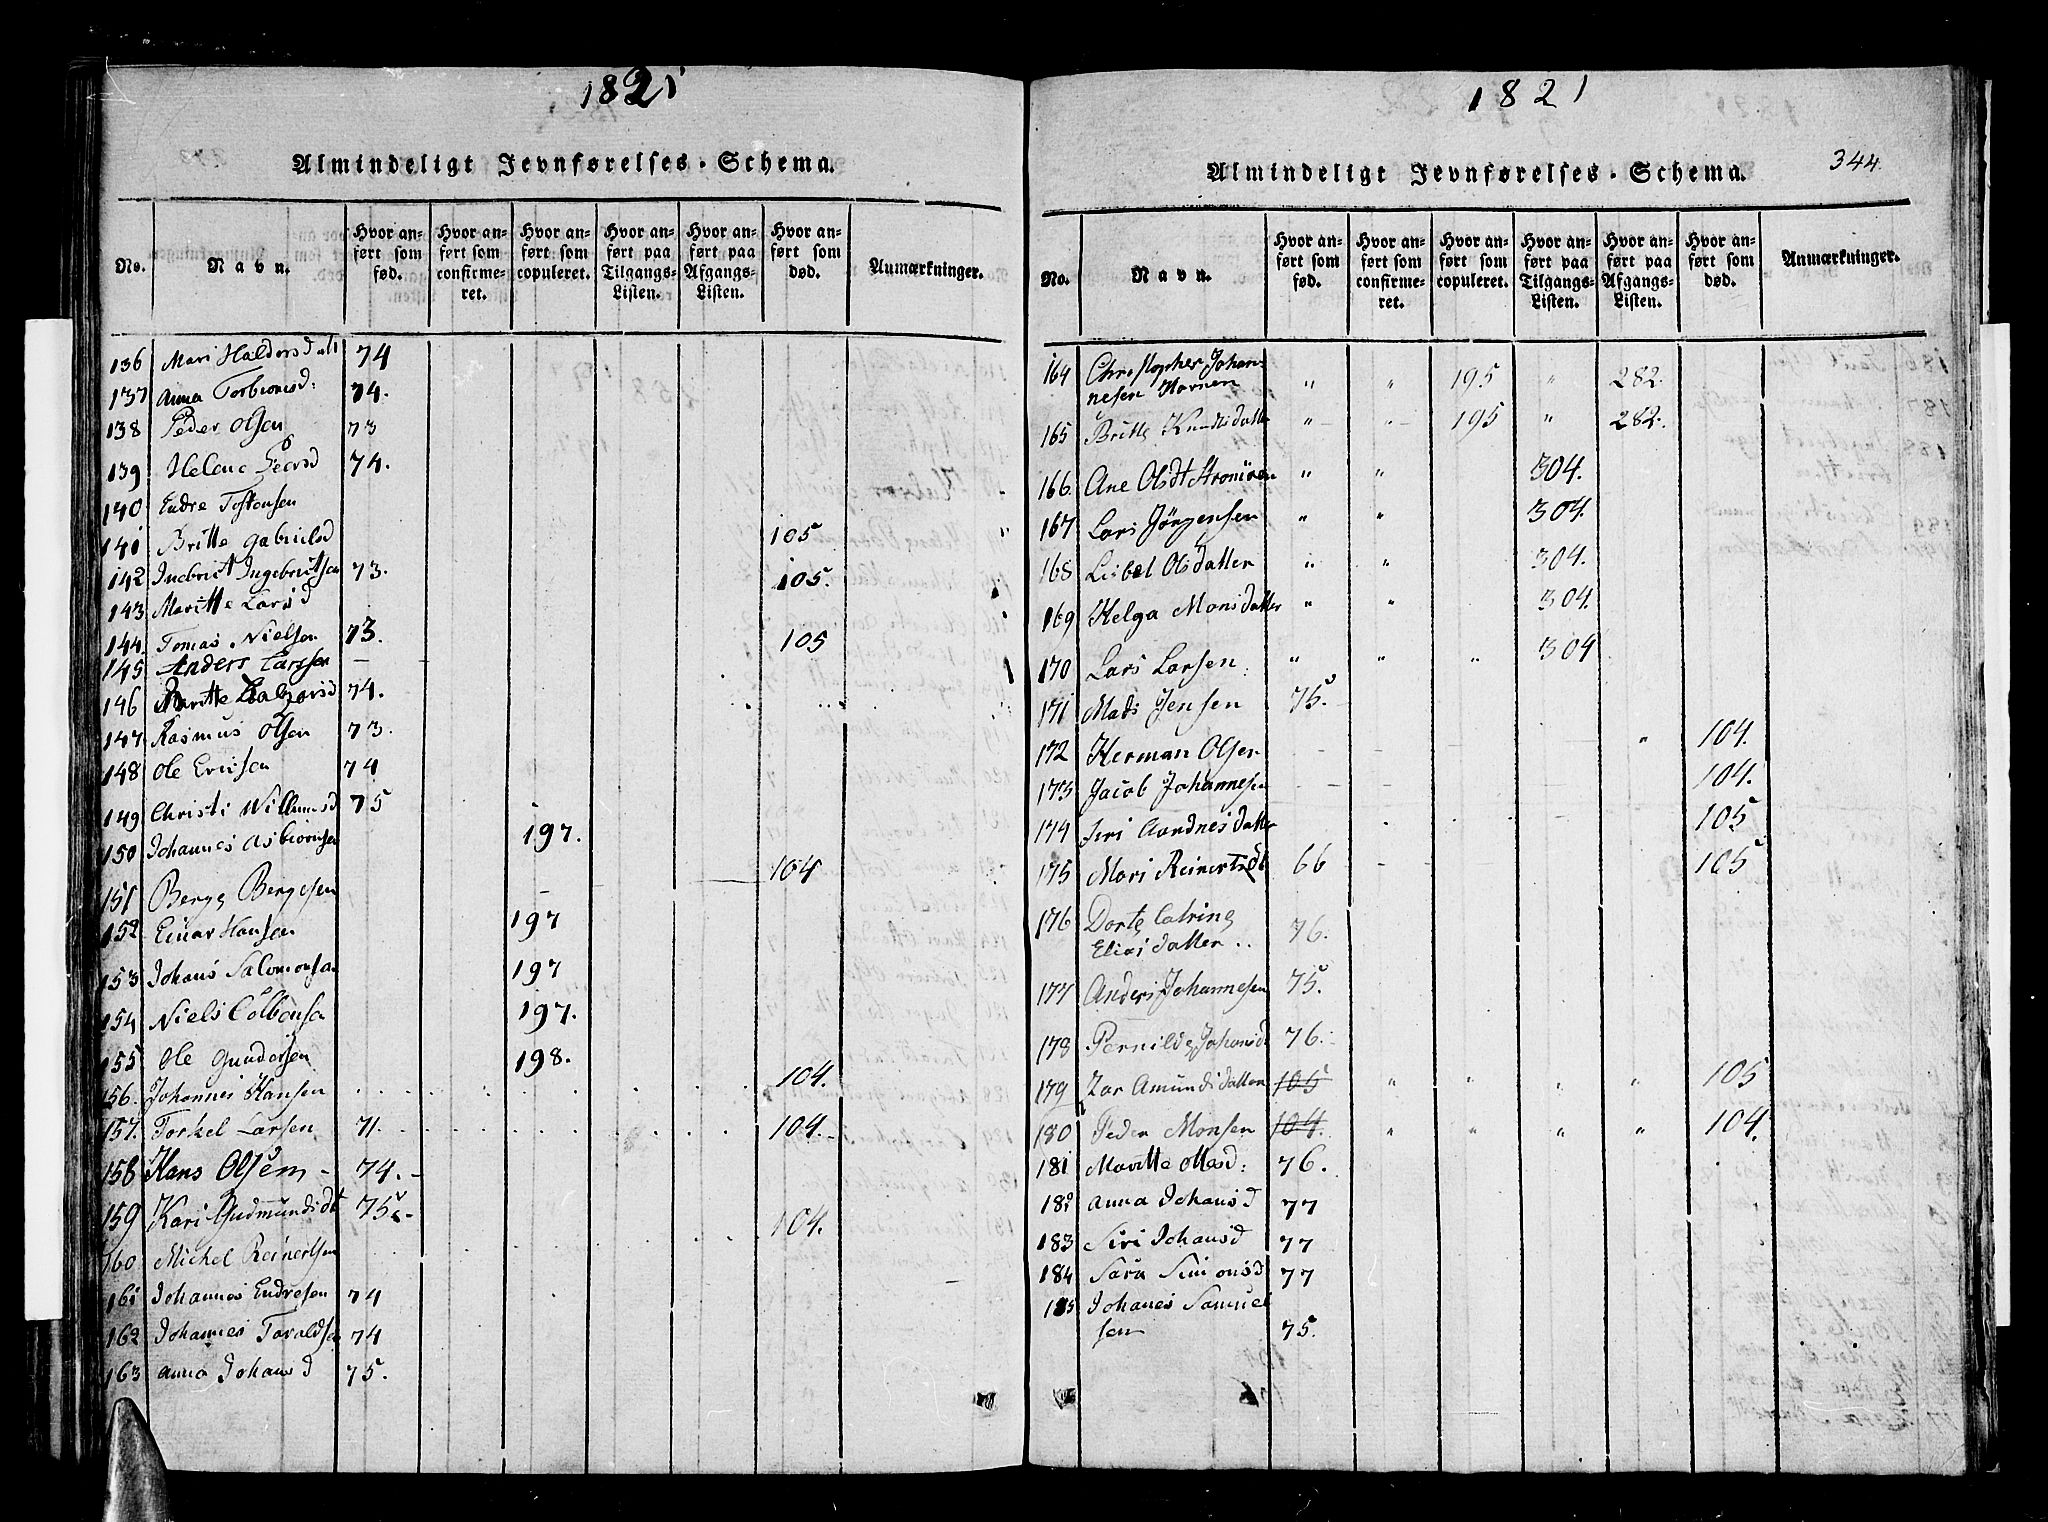 1821
Almindeligt Jevnførelses-Schema.
No. Navn. Hvor anført som fød. Hvor anført som confirmeret. Hvor anført som copuleret. Hvor anført paa Tilgangs-Listen. Hvor anført paa Afgangs-Listen. Hvor anført som død. Anmærkninger.
136 Mari Haldorsdatt 74
137 Anna Torbionsd: 74.
138 Peder Olsen 73
139 Helene Peersd 74.
140 Endre Tostensen
141 Britte Gabrielsd 105
142 Ingebrict Ingebrictsen 73. 105.
143 Maritte Larsd
144. Tomas Nielsen 73. 105
145 Anders Larssen –
146 Maritte 74.
147. Rasmus Olsen 73.
148 Ole Ericsen 74
149 Christi Willumsd 75
150 Johannes Asbiornsen 197.
151 Berge Bergesen 104
152 Einar Hansen 197
153 Johans Salomonsen 197
154 Niels Colbensen 197.
155 Ole Gundersen 198.
156. Johannes Hansen 104.
157. Torkel Larsen 71. 104.
158 Hans Olsen – 74. –
159 Kari Gudmundsdt 75 – 104.
160 Michel Reinertsen
161 Johannes Endresen 74
162 Johannes Toraldsen 74
163 Anna Johansd 75.
1821
344.
Almindeligt Jevnførelses-Schema.
No. Navn. Hvor anført som fød. Hvor anført som confirmeret. Hvor anført som copuleret. Hvor anført paa Tilgangs-Listen. Hvor anført paa Afgangs-Listen. Hvor anført som død. Anmærkninger.
164 Christopher Johan-
nesen " " 195 " 282.
165 Britte Knudsdatter " " 195 " 282.
166. Ane Olsdt " " 304.
167 Lars Jörgensen " " 304.
168 Lisbet Olsdatter " " 304.
169 Helga Monsdatter " " 304.
170 Lars Larsen " " " 304
171 Mads Jensen 75.
172 Herman Olsen " 104.
173 Jacob Johannesen 104.
174 Siri Aardnesdatter 105
175 Mari Reinertsdt 66 105
176 Dorte Catrine
Eliasdatter.. 76.
177 Anders Johannesen 75.
178 Pernilde Johansd 76.
179 Zar Amundsdatter 105 " " " " 105
180 Peder Monsen 104. " " " " 104.
181 Maritte Olasd: 76.
182 Anna Johansd 77
183 Siri Johansd 77
184 Sara Simonsd 77
185 Johanes Samuel
sen 75.